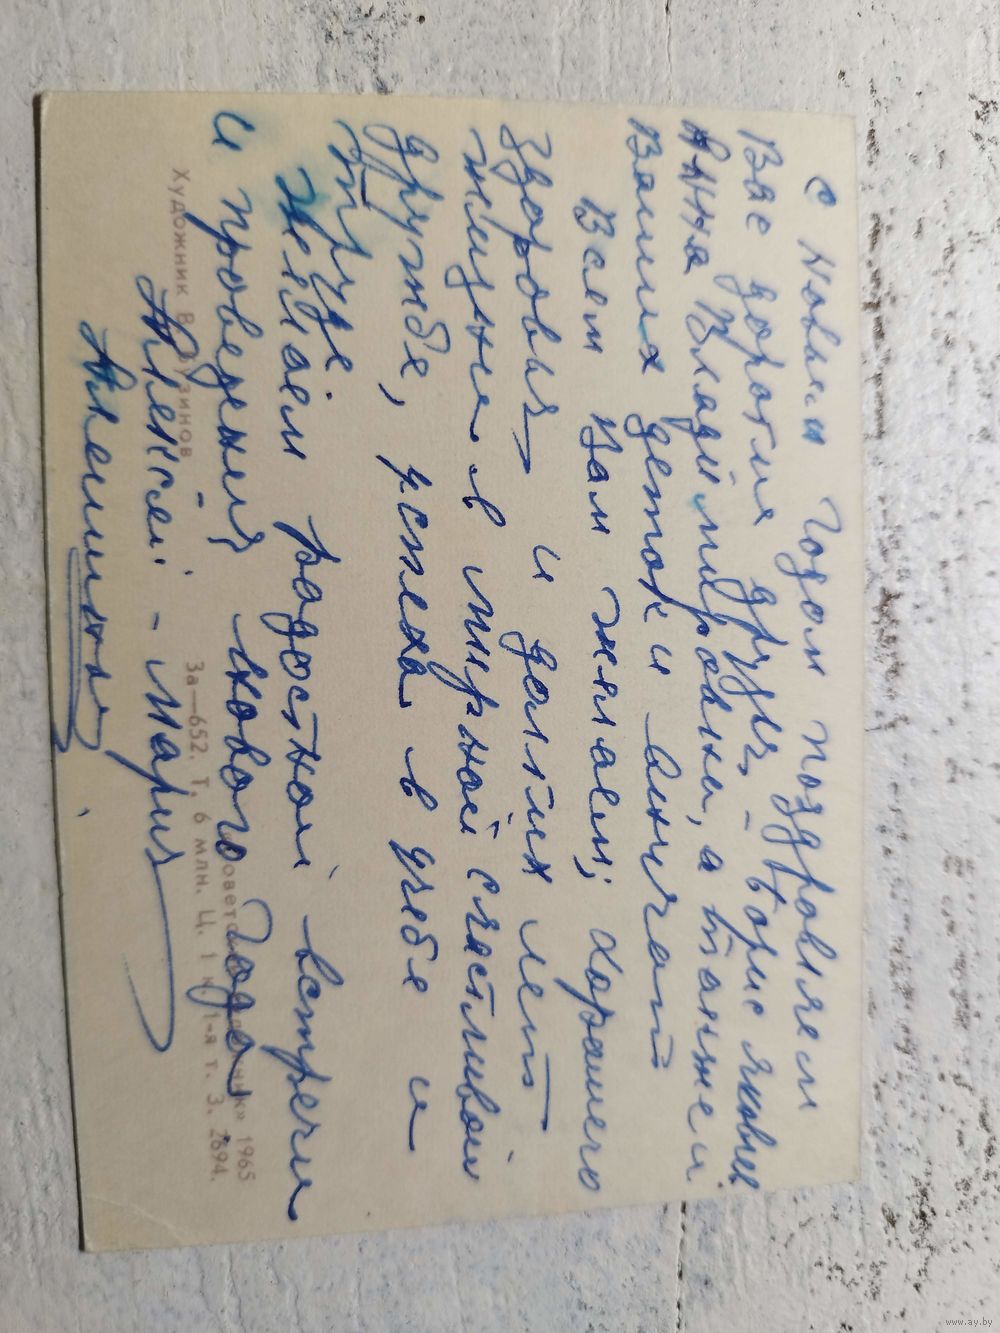 С новым Годом поздровляем
Вас дорогия друзья, - Борис Яковлев
Анна Владимировна, а также и
Ваших деток и внучат
Всем Вам желаем; хорошего
здоровия и долгих лет
жизни в мирной счастливой
дружбе, успеха в учебе и
труде.
Желаем радостной встречи
и проведения нового Года,
Алексей - Мария
Художник В. Бузинов
1965
За—652. Т. 6 млн. Ц. 1 к. 1-я т. З. 2694.
www.ay.by